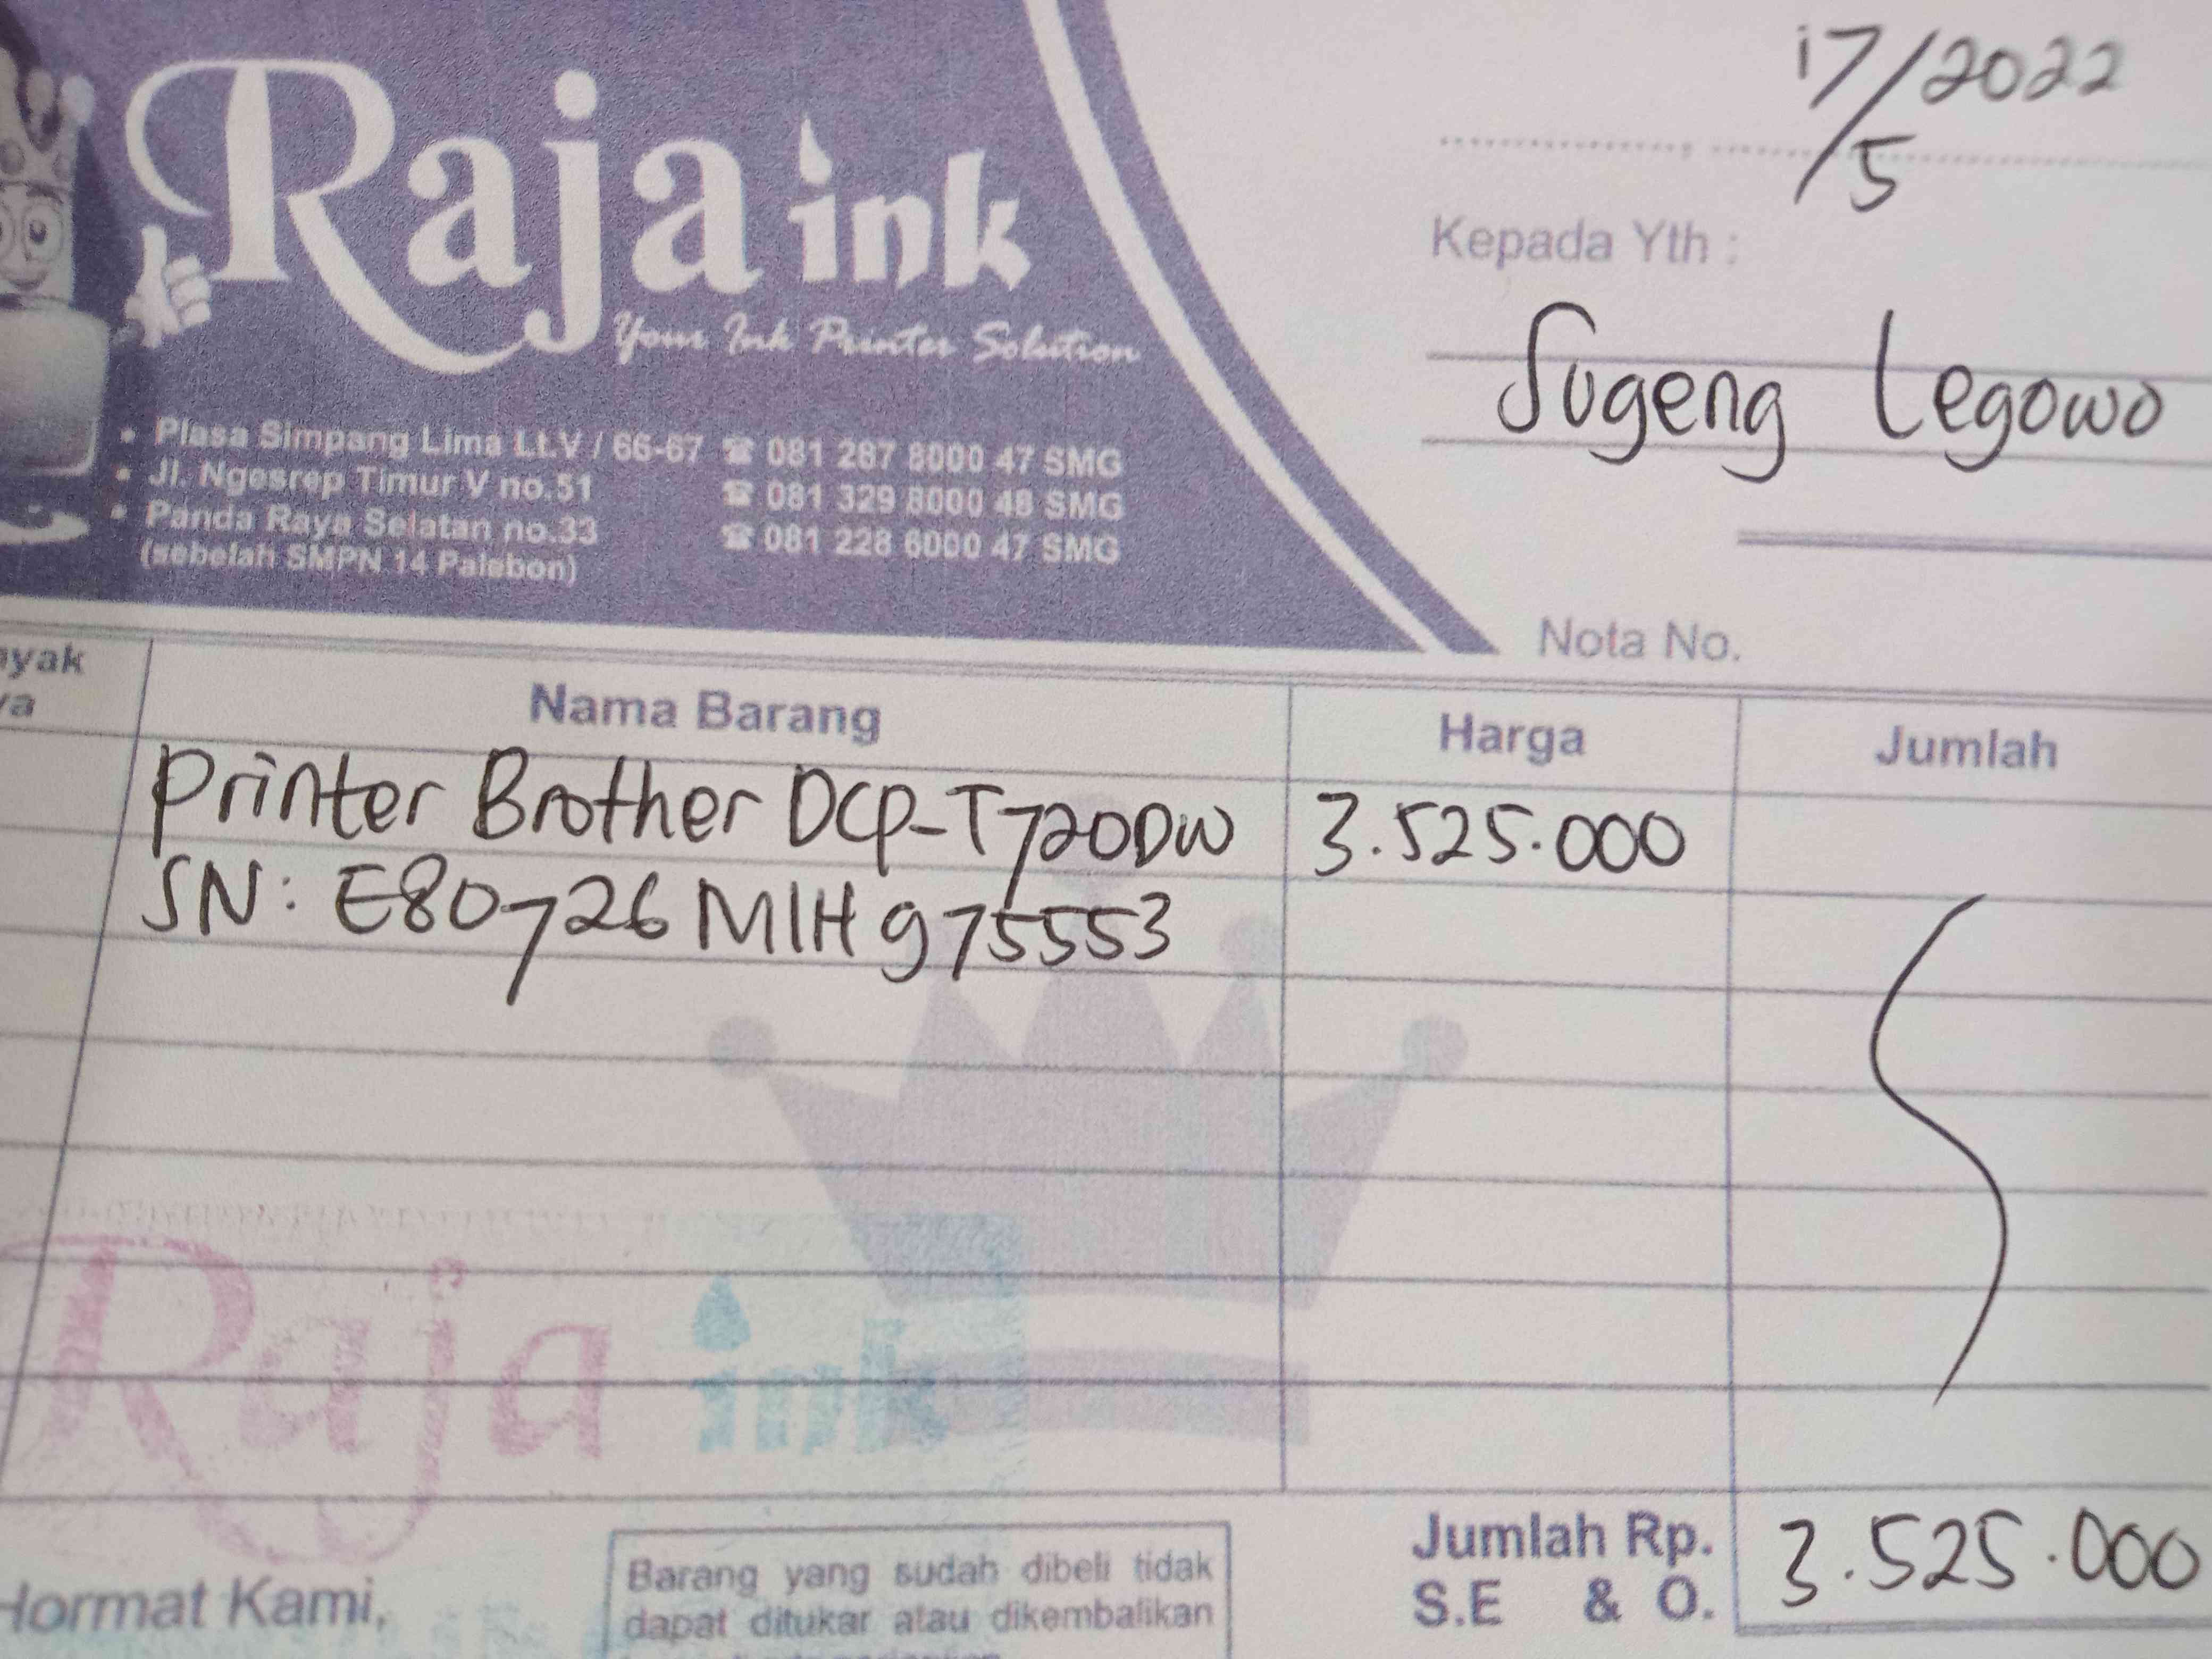 Raja ink
Your Ink Printer Solution
• Plasa Simpang Lima Lt.V / 66-67 ☎ 081 287 8000 47 SMG
• Jl. Ngesrep Timur V no.51 ☎ 081 329 8000 48 SMG
• Panda Raya Selatan no.33 ☎ 081 228 6000 47 SMG
(sebelah SMPN 14 Palebon)
17/5/2022
Kepada Yth :
Sugeng Legowo
Nota No.
yak
Nama Barang Harga Jumlah
Printer Brother DCP-T720DW 3.525.000
SN: E80726M1H975553
Raja ink
Hormat Kami,
Barang yang sudah dibeli tidak
dapat ditukar atau dikembalikan
Jumlah Rp. 3.525.000
S.E & O.